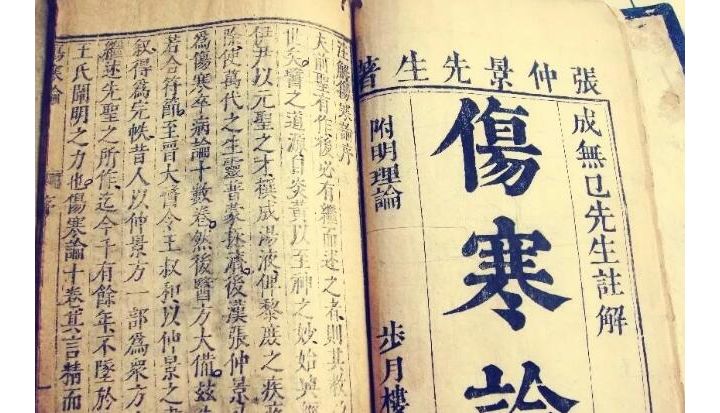 張仲景先生著
成無已先生註解
傷寒論
附明理論
步月樓
注解傷寒論序
夫前聖有作後必有繼而述之者則其教
世矣醫之道源自炎黃以至神之妙始興經
伊尹以元聖之才撰成湯液俾黎庶之疾
除使萬代之生靈普蒙拯濟後漢張仲景
為傷寒卒病論十數卷然後醫方大備茲
若合符節至晉太醫令王叔和以仲景之
叙得為完帙昔人以仲景方一部為眾方
繼述先聖之所作迄今千有餘年不墜於
王氏闡明之力也傷寒論十卷其言精而
傷寒論 序